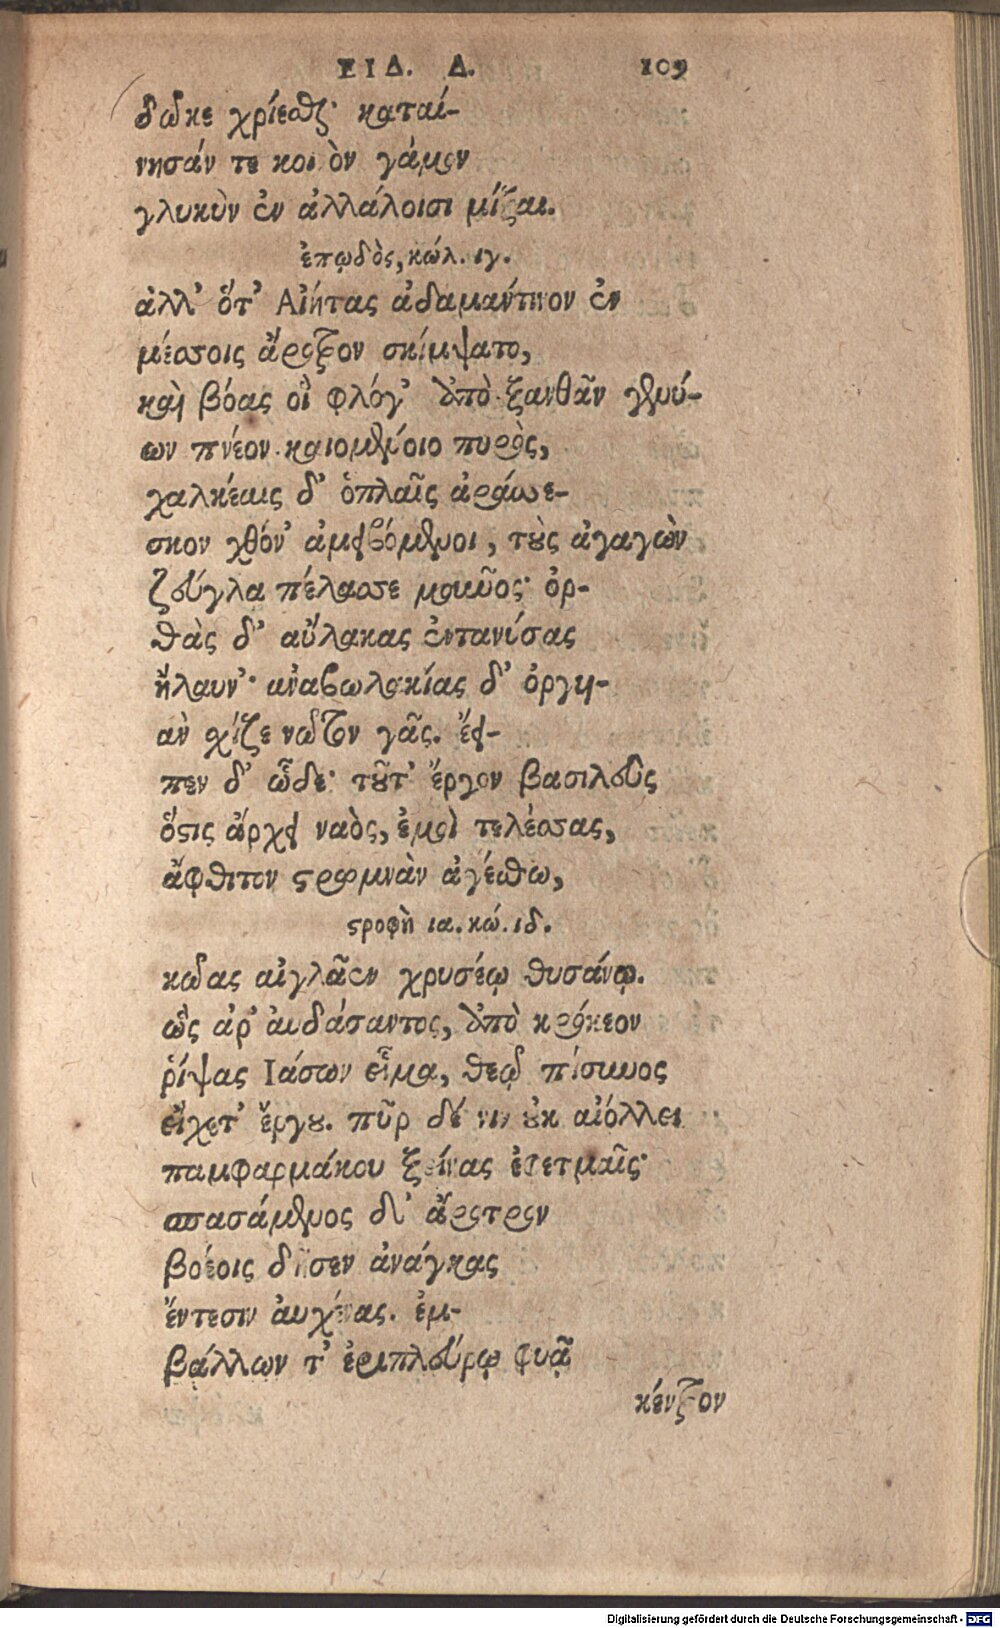 ΕΙΔ. Δ. 109
δῶκε χρίεσθαι· καταί-
νησάν τε κοινὸν γάμον
γλυκὺν ἐν ἀλλάλοισι μίξαι.
ἐπῳδὸς, κώλ. ιγ.
ἀλλ' ὅτ' Αἰήτας ἀδαμάντινον ἐν
μέσσοις ἄροτρον σκίμψατο,
καὶ βόας οἳ φλόγ' ἀπὸ ξανθᾶν γενύ-
ων πνέον καιομένοιο πυρὸς,
χαλκέαις δ' ὁπλαῖς ἀράσσε-
σκον χθόν' ἀμειβόμενοι, τοὺς ἀγαγὼν
ζεύγλα πέλασσε μοῦνος· ὀρ-
θὰς δ' αὔλακας ἐντανύσας
ἤλαυν'· ἀναβωλακίας δ' ὀργυι-
ὰν σχίζε νῶτον γᾶς. ἔει-
πεν δ' ὧδε· τοῦτ' ἔργον βασιλεὺς
ὅστις ἄρχει ναὸς, ἐμοὶ τελέσσας,
ἄφθιτον στρωμνὰν ἀγέσθω,
στροφὴ ια. κώ. ιδ.
κῶας αἰγλᾶεν χρυσέῳ θυσάνῳ.
ὣς ἀρ' αὐδάσαντος, ἀπὸ κρόκεον
ῥίψας Ιάσων εἷμα, θεῷ πίσυνος
εἴχετ' ἔργου. πῦρ δέ νιν οὐκ αἰόλλει
παμφαρμάκου ξείνας ἐφετμαῖς·
σπασάμενος δ' ἄροτρον
βοέοις δῆσεν ἀνάγκας
ἔντεσιν αὐχένας. ἐμ-
βάλλων τ' ἐριπλεύρῳ φυᾷ
κέντρον
Digitalisierung gefördert durch die Deutsche Forschungsgemeinschaft - DFG